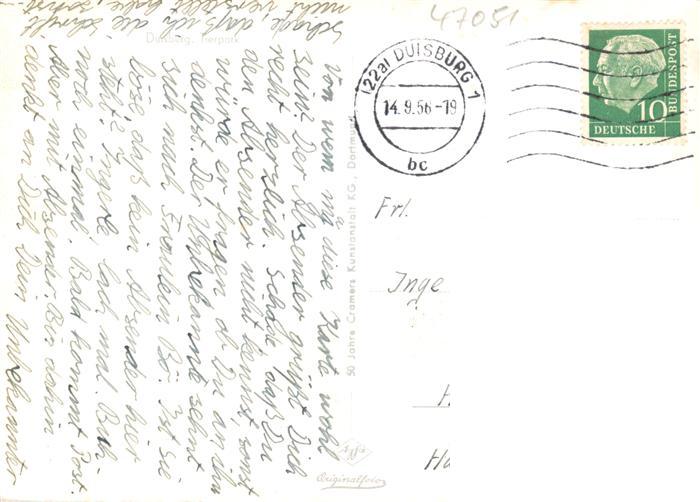 47051
(22a) DUISBURG 1
14.9.56-19
bc
DEUTSCHE
BUNDESPOST
10
Duisburg, Tierpark
Von wem mag diese Karte wohl
sein? Der Absender grüßt Dich
recht herzlich. Schade, daß Du
den Absender nicht kennst, sonst
würde er fragen ob Du an ihn
denkst. Der Unbekannte sehnt
sich nach Fräulein Bö. Ist sie
böse daß kein Absender hier
steht? Ingerle lach mal. Buh
noch einmal. Bald kommt Post.
Aber mit Absender. Bis dahin
denkt an Dich Dein Unbekannter
Schade, daß ich die Schrift
nicht verstellt habe,
50 Jahre Cramers Kunstanstalt KG., Dortmund
Agfa
Originalfoto
Frl.
Inge